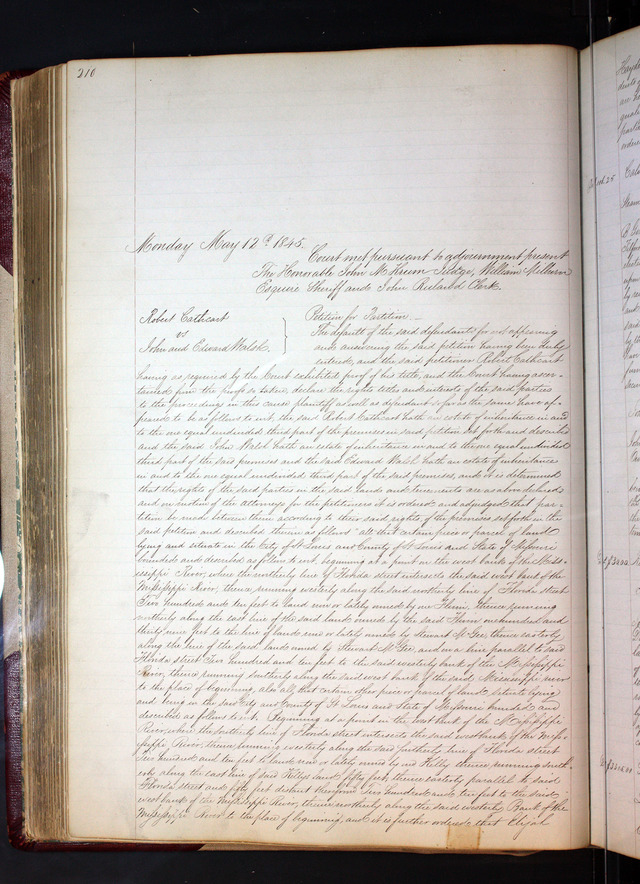 210
Monday May 12th 1845.
Court met pursuant to adjournment present
The Honorable John M Krum Judge, William Milburn
Esquire Sheriff and John Ruland Clerk.
Robert Cathcart
vs
John and Edward Walsh.
Petition for Partition.
The default of the said defendants for not appearing
and answering the said petition having been duly
entered, and the said petitioner Robert Cathcart
having as required by the Court exhibited proof of his title, and the Court having ascer-
tained from the proofs so taken, declare the rights titles and interests of the said parties
to the proceedings in this cause plaintiff as well as defendant so far as the same have ap-
peared to be as follows to wit, the said Robert Cathcart hath an estate of inheritance in and
to the one equal undivided third part of the premises in said petition set forth and described
and the said John Walsh hath an estate of inheritance in and to the one equal undivided
third part of the said premises and the said Edward Walsh hath an estate of inheritance
in and to the one equal undivided third part of the said premises, and it is determined
that the rights of the said parties in the said lands and tenements are as above declared
and on motion of the attorney for the petitioner it is ordered and adjudged that par-
tition be made between them according to their said rights, of the premises set forth in the
said petition and described therein as follows "all that certain piece or parcel of land
lying and situate in the City of St Louis and County of St Louis and State of Missouri
bounded and described as follows to wit, beginning at a point on the west bank of the Missis-
sippi River, where the northerly line of Florida street intersects the said west bank of the
Mississippi River, thence running westerly along the said northerly line of Florida street
Two hundred and ten feet to land now or lately owned by one thence running
northerly along the east line of the said land owned by the said one hundred and
thirty nine feet to the line of land now or lately owned by Stewart McGee, thence easterly
along the line of the said land owned by Stewart McGee, and on a line parallel to said
Florida street Two hundred and ten feet to the said westerly bank of the Mississippi
River, thence running southerly along the said west bank of the said Mississippi river
to the place of beginning, also all that certain other piece or parcel of land, situate lying
and being in the said City and County of St Louis and State of Missouri bounded and
described as follows to wit. Beginning at a point in the west bank of the Mississippi
River where the southerly line of Florida street intersects the said west bank of the Missis-
sippi River, thence running westerly along the said southerly line of Florida street
Two hundred and ten feet to land now or lately owned by one Kelly thence running south-
erly along the east line of said Kellys land fifty feet, thence easterly parallel to said
Florida street and fifty feet distant therefrom Two hundred and ten feet to the said
west bank of the Mississippi River, thence northerly along the said westerly Bank of the
Mississippi River to the place of beginning, and it is further ordered that Elijah